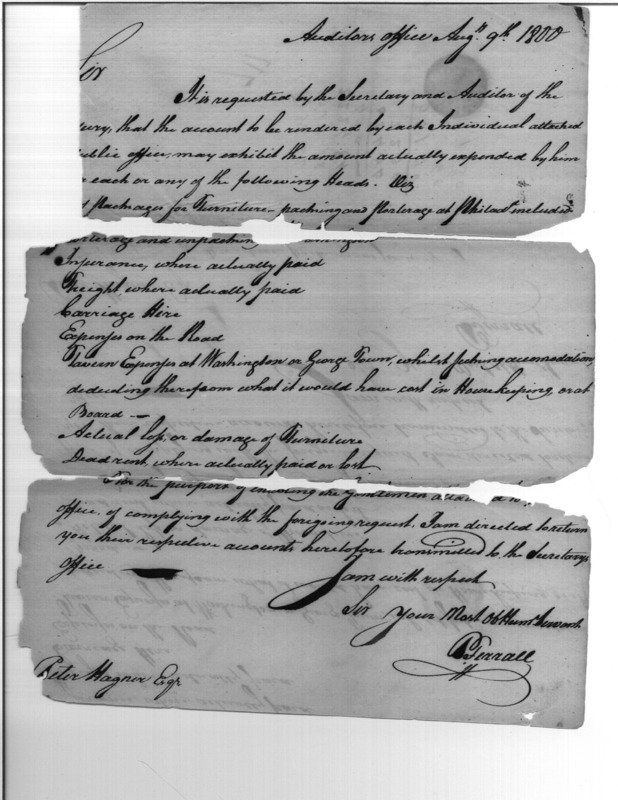 Auditors office Augt. 9th. 1800
Sir
It is requested by the Secretary and Auditor of the
ury, that the account to be rendered by each Individual attached
ublic office, may exhibit the amount actually expended by him
r each or any of the following Heads. Viz
d Packages for Furniture – packing and Porterage at Philada. included
orterage and unpacking
Insurance, where actually paid
Freight, where actually paid
Carriage Hire
Expenses on the Road
Tavern Expenses at Washington or George Town, whilst seeking accomodation,
deducting therefrom what it would have cost in Housekeeping, or at
Board –
Actual loss, or damage of Furniture
Dead rent, where actually paid or lost
For the purpose of enabling the Gentlemen attached to
office, of complying with the foregoing request, I am directed to return
you their respective accounts heretofore transmitted to the Secretarys
office
I am with respect
Sir Your Most Ob Huml Servant
P Ferrall
Peter Hagner Esqr